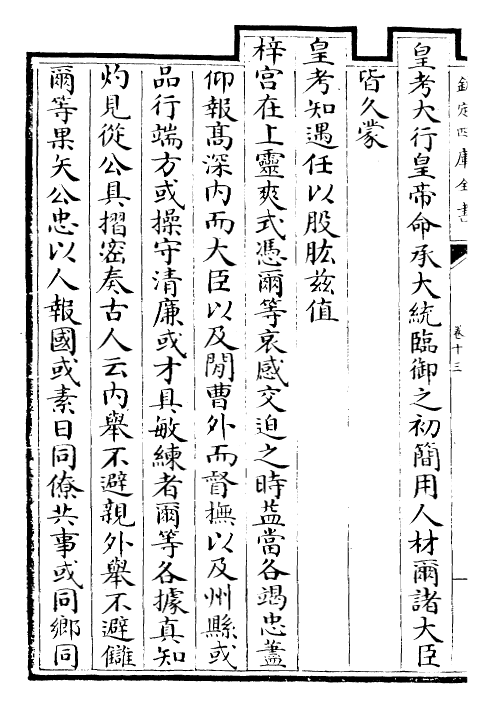 欽定四庫全書
卷十三
皇考大行皇帝命承大統臨御之初簡用人材爾諸大臣
皆久蒙
皇考知遇任以股肱兹值
梓宮在上靈爽式憑爾等哀感交迫之時葢當各竭忠藎
仰報髙深内而大臣以及閒曹外而督撫以及州縣或
品行端方或操守清廉或才具敏練者爾等各據真知
灼見從公具摺密奏古人云内舉不避親外舉不避讎
爾等果矢公忠以人報國或素日同僚共事或同鄉同